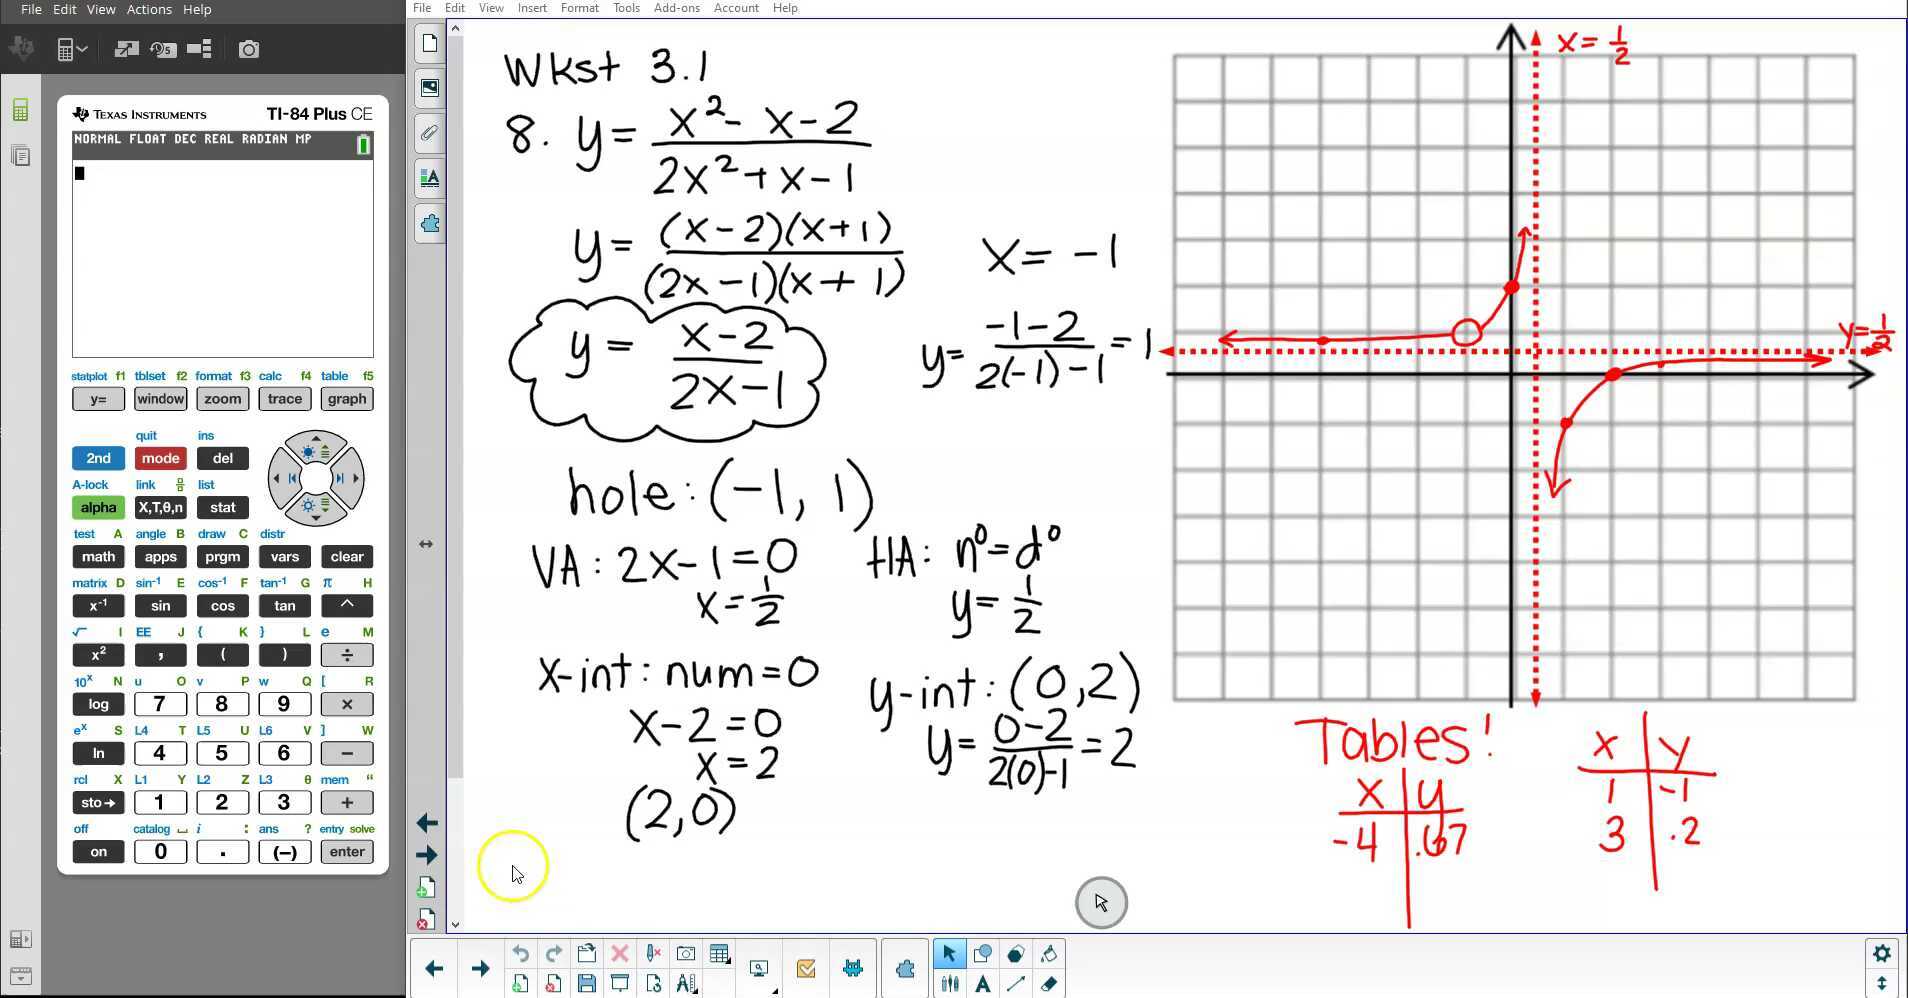 File Edit View Actions Help
File Edit View Insert Format Tools Add-ons Account Help
TEXAS INSTRUMENTS TI-84 Plus CE
NORMAL FLOAT DEC REAL RADIAN MP
statplot f1 tblset f2 format f3 calc f4 table f5
y= window zoom trace graph
quit ins
2nd mode del
A-lock link list
alpha X,T,θ,n stat
test A angle B draw C distr
math apps prgm vars clear
matrix D sin⁻¹ E cos⁻¹ F tan⁻¹ G π H
x⁻¹ sin cos tan ^
√ I EE J { K } L e M
x² , ( ) ÷
10ˣ N u O v P w Q [ R
log 7 8 9 ×
eˣ S L4 T L5 U L6 V ] W
ln 4 5 6 −
rcl X L1 Y L2 Z L3 θ mem “
sto→ 1 2 3 +
off catalog ⎵ i : ans ? entry solve
on 0 . (−) enter
Wkst 3.1
8. y = (x² - x - 2)/(2x² + x - 1)
y = (x-2)(x+1)/(2x-1)(x+1)
y = (x-2)/(2x-1)
x = -1
y = (-1-2)/(2(-1)-1) = 1
hole: (-1, 1)
VA: 2x-1=0
x = 1/2
HA: n°=d°
y = 1/2
x-int: num=0
x-2=0
x=2
(2,0)
y-int: (0,2)
y = (0-2)/(2(0)-1) = 2
x = 1/2
y = 1/2
Tables!
x y
-4 .67
x y
1 -1
3 .2